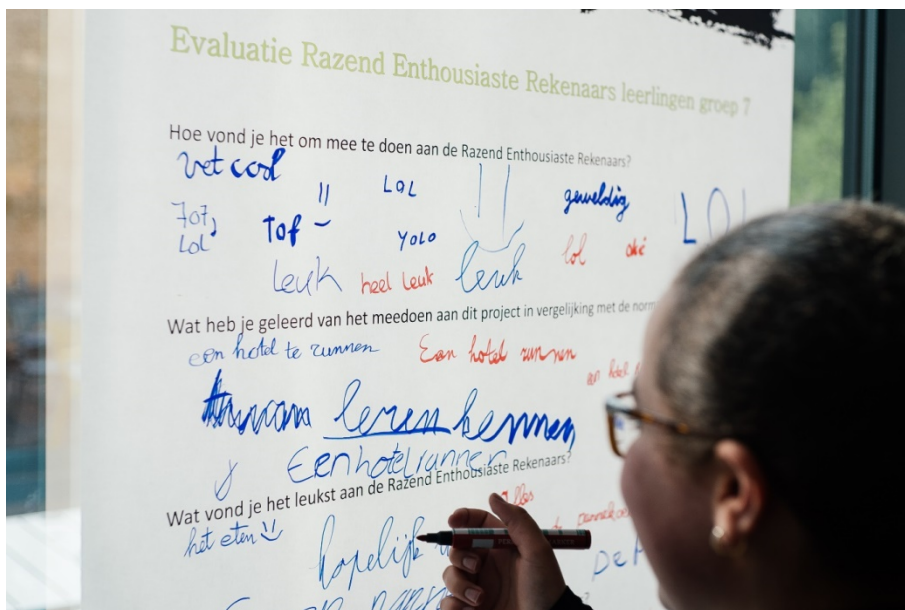 Evaluatie Razend Enthousiaste Rekenaars leerlingen groep 7
Hoe vond je het om mee te doen aan de Razend Enthousiaste Rekenaars?
vet cool
LOL
geweldig
LOL
Tof,
LOL
Tof
YOLO
lol
oké
Leuk
heel Leuk
leuk
Wat heb je geleerd van het meedoen aan dit project in vergelijking met de
een hotel te runnen
Een hotel runnen
een hotel
leren kennen
Een hotel runnen
Wat vond je het leukst aan de Razend Enthousiaste Rekenaars?
het eten
hopelijk
Alles